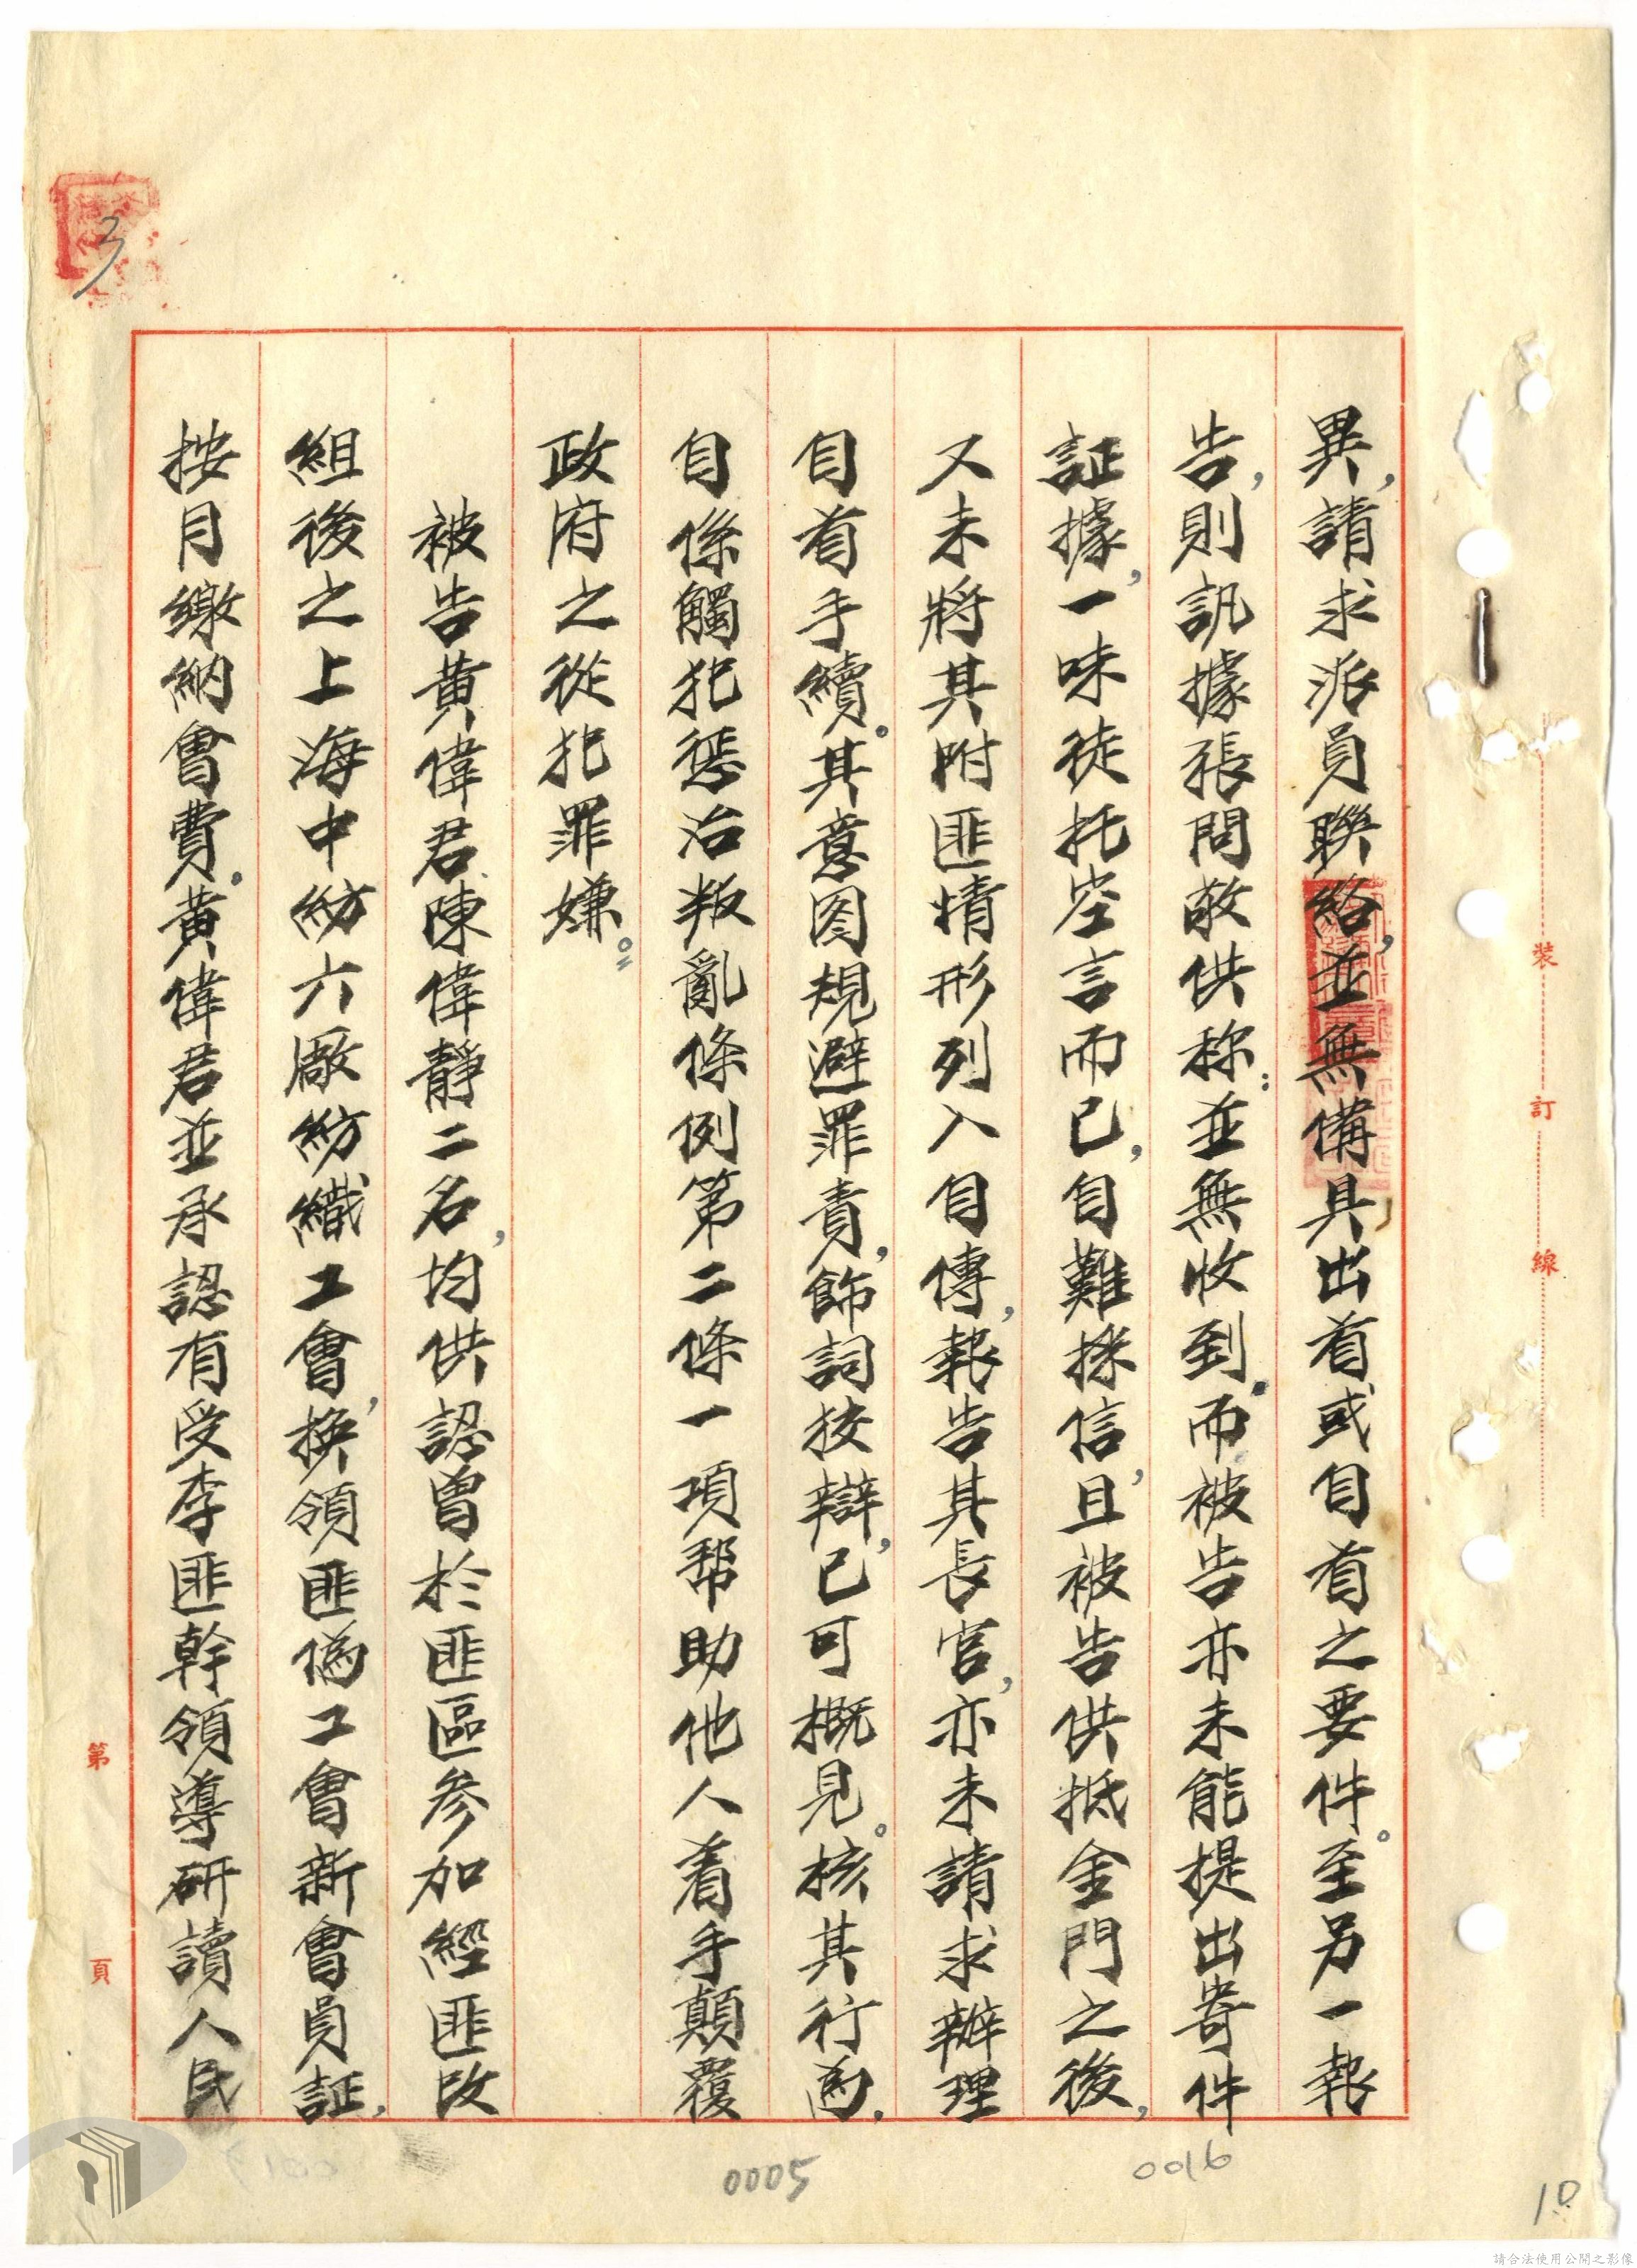 異，請求派員聯絡，並無備具出首或自首之要件。至另一報
告，則訊據張問敬供称：並無收到。而被告亦未能提出寄件
証據，一味徒托空言而已，自難採信，且被告供抵金門之後，
又未將其附匪情形列入自傳，報告其長官，亦未請求辦理
自首手續。其意图規避罪責，飾詞狡辯，已可概見。核其行為，
自係觸犯惩治叛亂條例第二條一項帮助他人着手顛覆
政府之從犯罪嫌。
被告黄偉君、陳偉靜二名，均供認曾於匪區参加經匪改
組後之上海中紡六廠紡織工會，換領匪偽工會新會員証，
按月繳納會費。黄偉君並承認有受李匪幹領導研讀人民
裝
訂
線
第
頁
3
0005
0016
10
請合法使用公開之影像